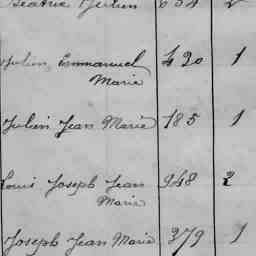 Julien Emmanuel 420 1
Marie
Julien Jean Marie 185 1
Louis Joseph Jean 948 2
Marie
Joseph Jean Marie 379 1